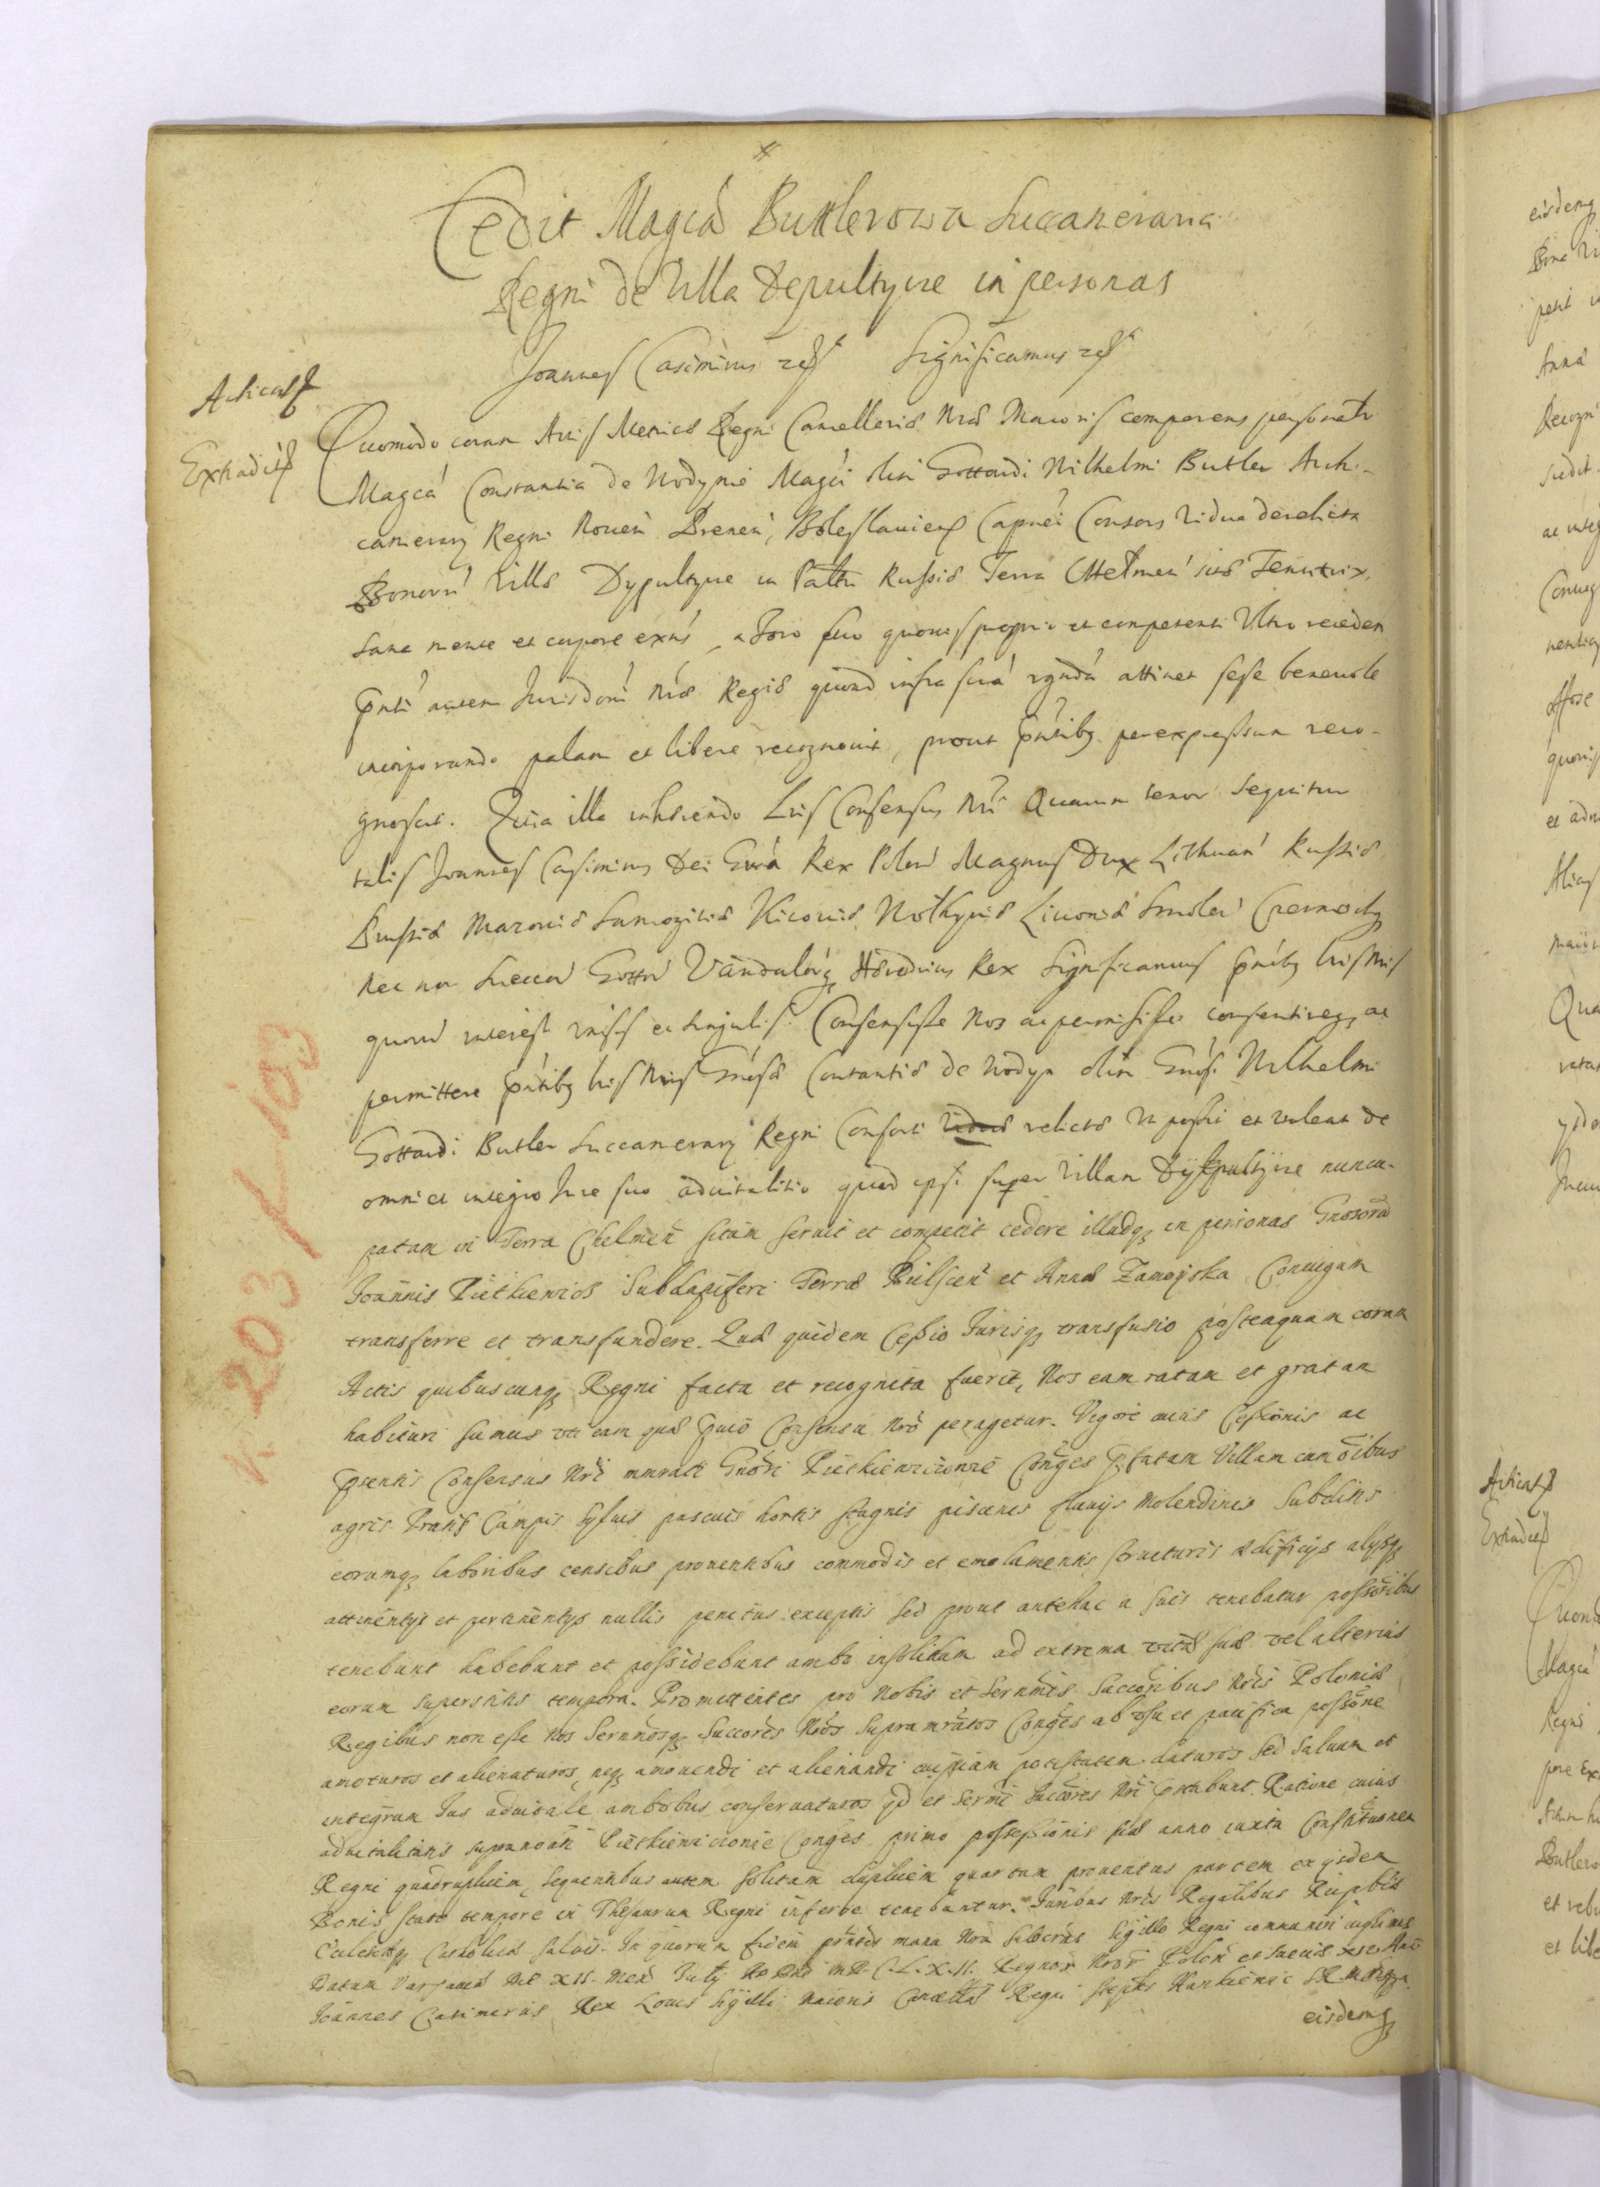 Cedit Magcá Buttlerowa Succameraria
Regni de Villa Depultycze in personas
Joannes Casimirus Significamus
Acticat
Quomodo coram Actis Metrices Regni Cancellariæ Nræ Maioris comparens personaltr
Extradit
Magcá Constantia de Wodynie Magci olim Gottardi Wilhelmi Butler Archi-
camerary Regni Drenen, Boleslauien Capnei Consors Vidua derelicta
Bonorú Villæ Dypultycze in Paltu Russiæ Terra Chelmen Tenutrix,
sana mente et corpore exns, a Foro suo quouis proprio et competenti Vltro receden
pnti autem Jurisdoni Nræ Regiæ quoad infra scrá attinet sese beneuole
incorporando palam et libere recognouit, prout pntibq per expressum reco-
gnoscit. Quia illa inhærendo Lris Consensus Nri Quarum tenor sequitur
talis Joannes Casimirus Dei Gra Rex Polon Magnus Dux Lithuan Russiæ
Prussiæ Mazouiæ Samogitiæ Kiiouiæ Wolhyniæ Liuoniæ Smolen Czernieciq
nec non Sueccor Gottor Vandalorq Hæredrius Rex Significamus pntibq lris Nris
quorú interest vnisis et singulis. Consensisse Nos ac permisisse consentireq ac
permittere pntibq lris Nris Gnósæ Constantiæ de Wodyn olim Gnósi Wilhelmi
Gottardi Butler Succamerary Regni Consorti viduæ relictæ Vt possit et valeat de
omni et integro Jure suo aduitalitio quod ipsi super Villam Dypultycze nuncu-
patam in Terra Chelmen sitam seruit et competit cedere illudq in personas Gnosoru
Joannis Pietkiewicz Subdapiferi Terræ Bielscen et Annæ Zamoyska Coniugum
transferre et transfundere. Quæ quidem Cessio Jurisq transfusio posteaquam coram
Actis quibuscunq Regni facta et recognita fuerit, Nos eam ratam et gratam
habituri sumus vti eam quæ Consensu Nro peragetur. Vigore cuius Cessionis ac
pntis Consensus Nri mmrati Gnósi Pietkiewiczowie Conges pfatam Villam cum oibus
agris Pratis Campis syluis pascuis hortis stagnis piscinis fluuys Molendinis Subditis
eorumq laboribus censibus prouentibus commodis et emolumentis structuris ædificys alysq
attinentys et pertinentys nullis penitus exceptis sed prout antehac a suis tenebatur possoribus
tenebunt habebunt et possidebunt ambo insolidum ad extrema vitæ suæ vel alterius
eorum superstitis tempora. Promittentes pro Nobis et Sernmis Succoribus Nris Poloniæ
Regibus non esse Nos Sernmosq Succores Nros supramratos Conges ab vsu et pacifica possone
amoturos et alienaturos neq amouendi et alienandi cuipiam potestatem daturos sed saluum et
integrum Jus aduitale ambobus conseruaturos qd et Sermi Succores Nri pstabunt. Ratione cuius
aduitalitatis supranoati Pietkiewiczowie Conges primo possessionis suæ anno iuxta Constitutionem
Regni quadruplicem, sequentibus autem solitam duplicem quartam prouentus partem ex ijsdem
Bonis stato tempore in Thesaurum Regni inferre tenebuntur. Juribus Nris Regalibus Reipblcæ
Eclesiæq Catholicæ saluis. In quorum fidem pntes manu Nra subscrtas Sigillo Regni communiri iussimus
Datum Varsauiæ Die XII Mens July Regnor Nror Polon et Sueciæ
Joannes Casimirus Rex Locus Sigilli Maioris Cancellæ Regni
eisdemq
K 203 k 193